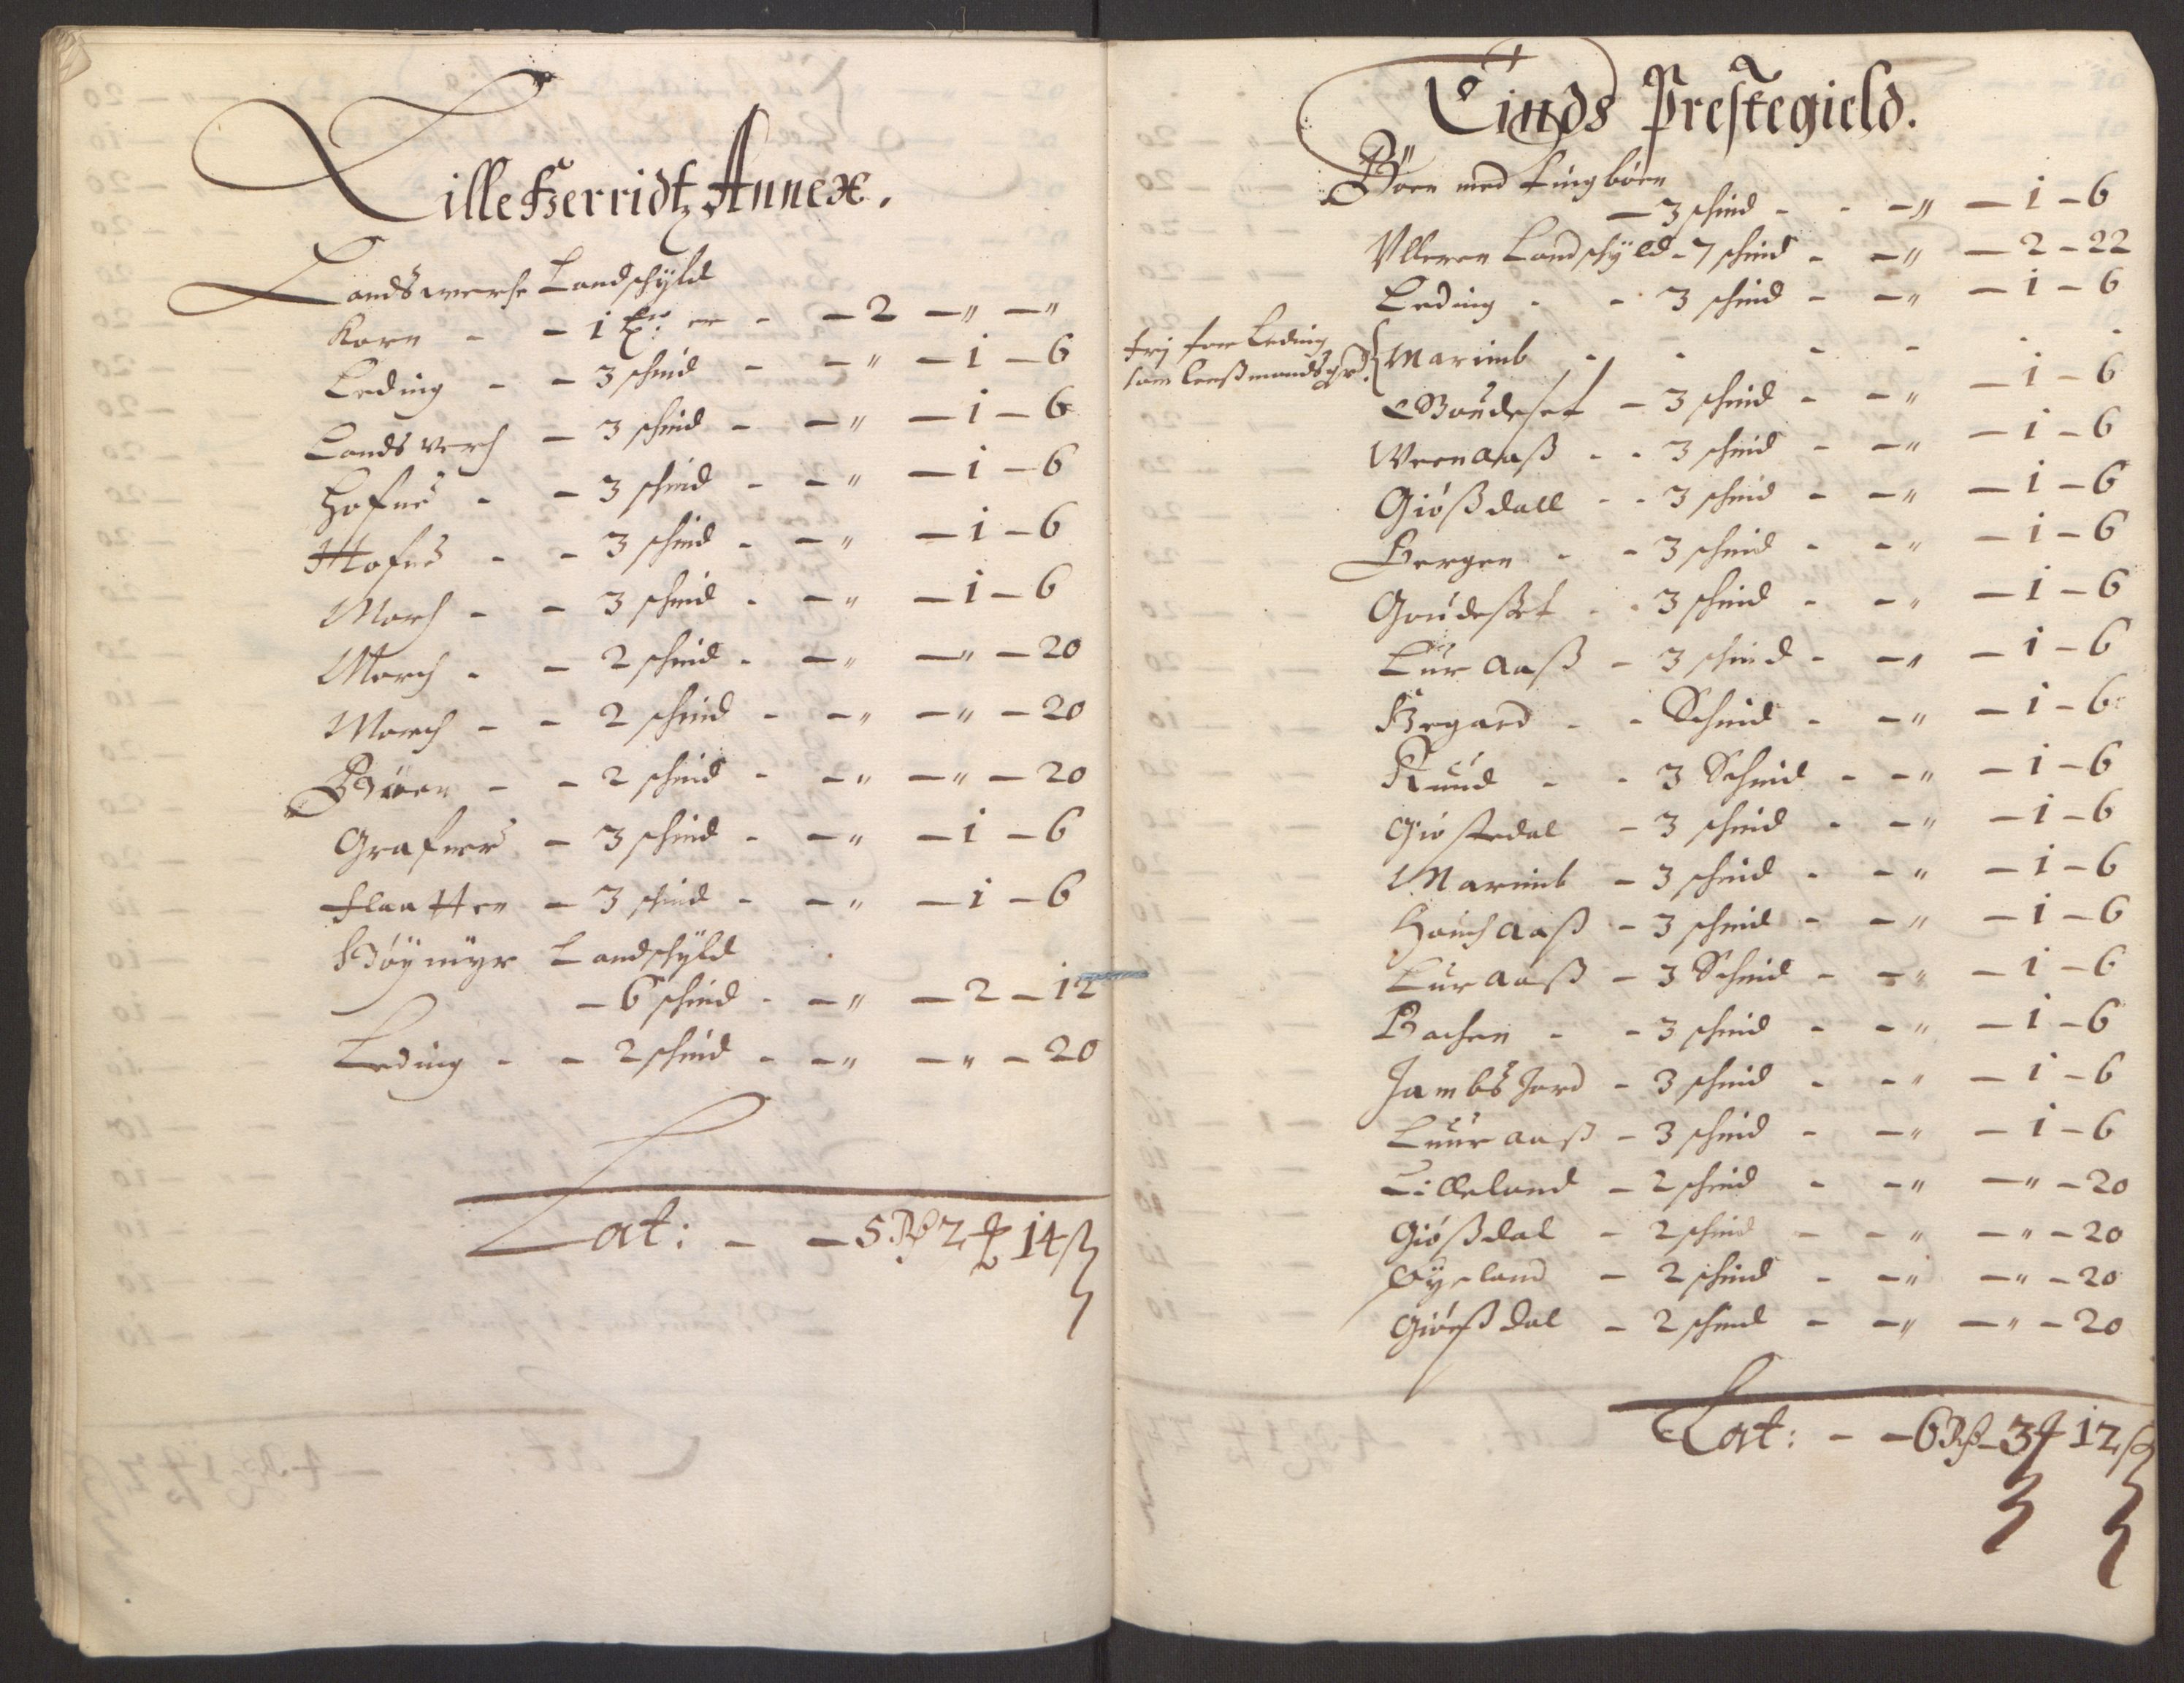 LilleHerridtz Annex.
Landswerche Landschyld
Korn - - 1 - - 2 - " - "
Leding - - 3 schind - - " - 1 - 6
Landswerch - 3 schind - - " - 1 - 6
Hofnes - - 3 schind - - " - 1 - 6
Mofnes - - 3 schind - - " - 1 - 6
March - - 3 schind - - " - 1 - 6
March - - 2 schind - - " - " - 20
March - - 2 schind - - " - " - 20
Böen - - 2 schind - - " - " - 20
Grafver - 3 schind - - " - 1 - 6
Flaatten - 3 schind - - " - 1 - 6
Höymyr Landschyld
- 6 schind - - " - 2 - 12
Leding - - 2 schind - - " - " - 20
Lat: - - 5 Rß 2 ₰ 14 ß
Tinds Prestegield.
Böen med Tingböen
- 3 schind - - - " - 1 - 6
Ulleren Landschyld - 7 schind - - " - 2 - 22
Leding - - 3 schind - - " - 1 - 6
fri for Leding
som leenßmandsgrd. { Marimb - - - - - -
Goudeset - 3 schind - - " - 1 - 6
Weenaaß - - 3 schind - - " - 1 - 6
Giößdall - - 3 schind - - " - 1 - 6
Bergen - - 3 schind - - " - 1 - 6
Goudeset - - 3 schind - - " - 1 - 6
Luraaß - 3 schind - - " - 1 - 6
Hegard - - Schind - - " - 1 - 6
Ruud - - 3 Schind - - " - 1 - 6
Giöstedal - 3 schind - - " - 1 - 6
Marimb - 3 schind - - " - 1 - 6
Houchaaß - 3 schind - - " - 1 - 6
Luraaß - 3 Schind - - " - 1 - 6
Bachen - - 3 schind - - " - 1 - 6
Jambsjord - 3 schind - - " - 1 - 6
Luuraaß - 3 schind - - " - 1 - 6
Lilleland - 2 schind - - " - " - 20
Giößdal - 2 schind - - " - " - 20
Öyeland - 2 schind - - " - " - 20
Giöeßdal - 2 schind - - " - " - 20
Lat: - - 6 Rß - 3 ₰ 12 ß